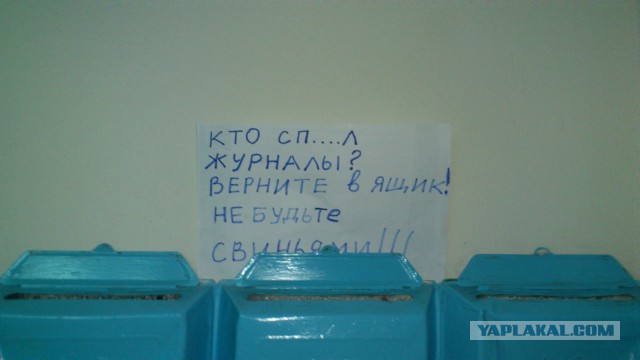 КТО СП....Л
ЖУРНАЛЫ?
ВЕРНИТЕ В ЯЩИК!
НЕ БУДЬТЕ
СВИНЬЯМИ!!!
YAPLAKAL.COM